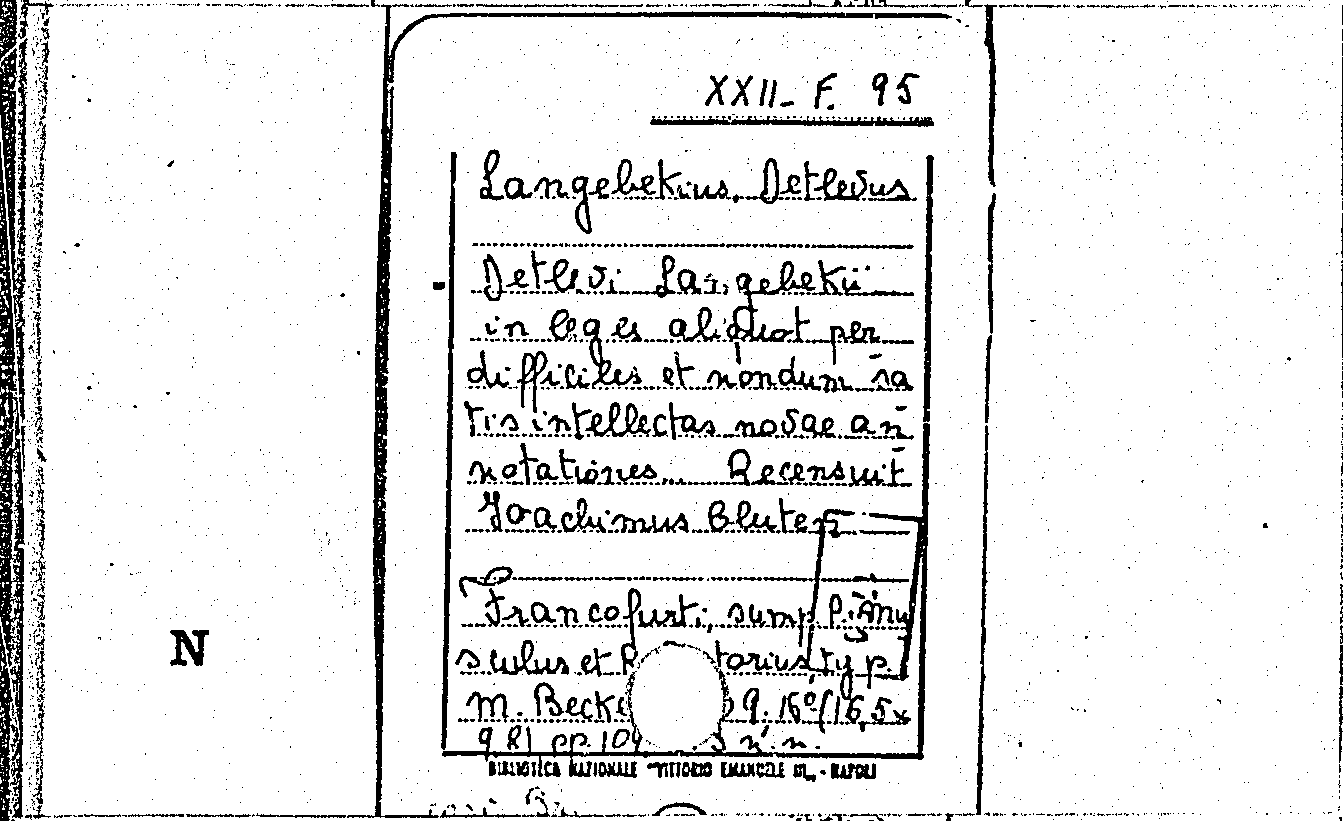 XXII- F. 95
Langebekius, Detlevus
Detlevi Langebekii
in leges aliquot per
difficiles et nondum sa
tis intellectas novae an
notationes... Recensuit
Joachimus Bluten
Francofurti, sump. P.
sculus et typ.
M. Beck 9. 16° (16,5x
9,8) pp. n.n.
BIBLIOTECA NAZIONALE "VITTORIO EMANUELE III" - NAPOLI
N